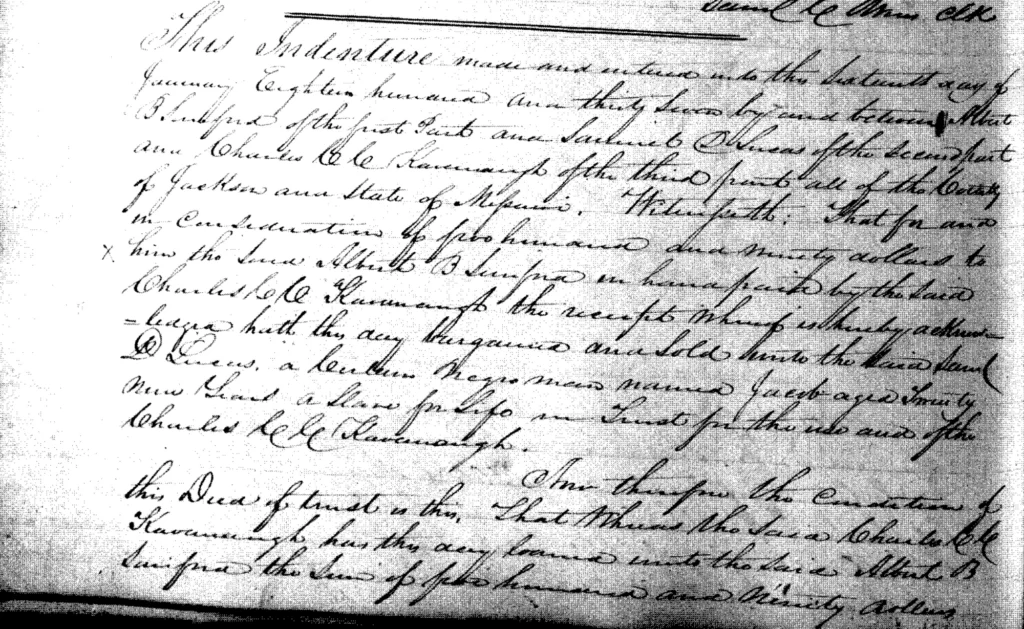 Saml C Owens Clk
This Indenture made and entered into this Sixteenth day of
January Eighteen hundred and thirty Seven by and between Albert
B of the first Part and Samuel D Lucas of the Second part
and Charles C C Kavanaugh of the third part all of the County
of Jackson and State of Missouri. Witnesseth: That for and
in Consideration of five hundred and ninety dollars to
him the Said Albert B in hand paid by the Said
Charles C C Kavanaugh the receipt whereof is hereby acknow=
=ledged hath this day bargained and Sold unto the Said Saml
D Lucas, a Certain Negro man named Jacob aged Twenty
nine Years a Slave for Life in Trust for the use and of the
Charles C C Kavanaugh.
Now therefore the Condition of
this Deed of trust is this. That Whereas the Said Charles C C
Kavanaugh has this day loaned unto the Said Albert B
the Sum of five hundred and Ninety dollars